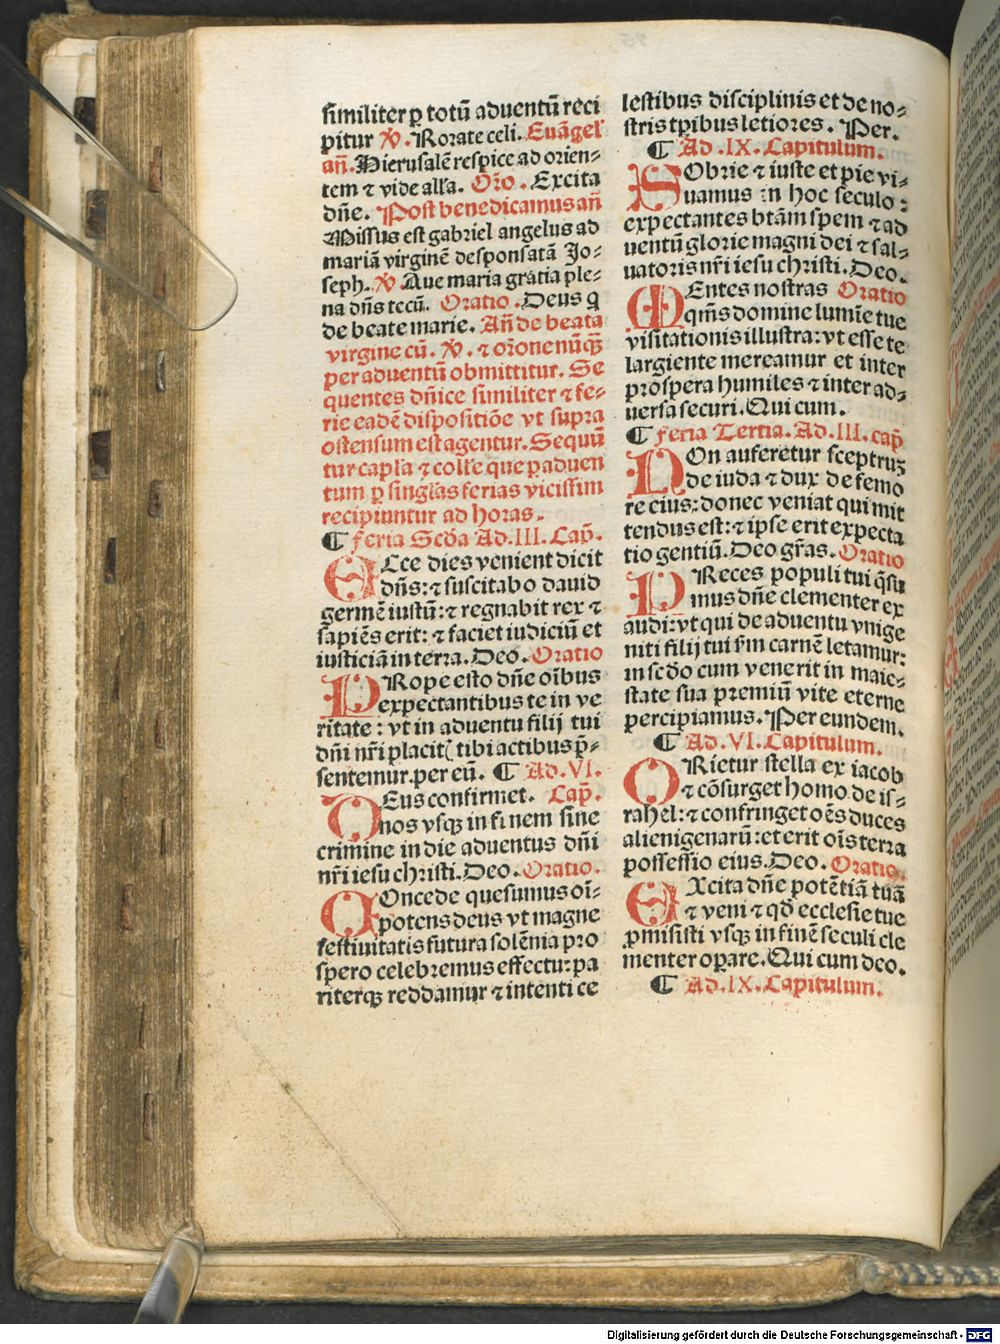 similiter ꝑ totū aduentū reci
pitur ℣. Rorate celi. Euāgeĺ
añ. Hierusalē respice ad orien⸗
tem ⁊ vide alĺa. Oŕo. Excita
dñe. Post benedicamus añ
Missus est gabriel angelus ad
mariā virginē desponsatā Jo⸗
seph. ℣ Aue maria gratia ple⸗
na dñs tecū. Oratio. Deus q
de beate marie. Añ de beata
virgine cū. ℣. ⁊ oŕone nūqꝫ
per aduentū obmittitur. Se
quentes dñice similiter ⁊ fe⸗
rie eadē dispositiōe vt supra
ostensum est agentur. Sequū
tur capĺa ⁊ colĺe que ꝑ aduen
tum ꝑ singĺas ferias vicissim
recipiuntur ad horas.
¶ Feria Scďa Ad .III. Cap̃.
ECce dies venient dicit
dñs: ⁊ suscitabo dauid
germē iustū: ⁊ regnabit rex ⁊
sapiēs erit: ⁊ faciet iudiciū et
iusticiā in terra. Deo. Oratio
PRope esto dñe oībus
expectantibus te in ve
ritate: vt in aduentu filij tui
dñi nŕi placiti tibi actibus p̄⸗
sentemur. per eū. ¶ Ad .VI.
DEus confirmet. Cap̃.
nos vsqꝫ in finem sine
crimine in die aduentus dñi
nŕi iesu christi. Deo. Oratio.
COncede quesumus oī⸗
potens deus vt magne
festiuitatis futura solēnia pro
spero celebremus effectu: pa
riterqꝫ reddamur ⁊ intenti ce
lestibus disciplinis et de no⸗
stris tṕibus letiores. Per.
¶ Ad .IX. Capitulum.
SObrie ⁊ iuste et pie vi⸗
uamus in hoc seculo:
expectantes btām spem ⁊ ad
uentū glorie magni dei ⁊ sal⸗
uatoris nŕi iesu christi. Deo.
MEntes nostras Oratio
qm̄s domine lumīe tue
visitationis illustra: vt esse te
largiente mereamur et inter
prospera humiles ⁊ inter ad⸗
uersa securi. Qui cum.
¶ Feria Tertia. Ad .III. cap̃
NOn auferetur sceptruꝫ
de iuda ⁊ dux de femo
re eius: donec veniat qui mit
tendus est: ⁊ ipse erit expecta
tio gentiū. Deo gŕas. Oratio
PReces populi tui q̄su
mus dñe clementer ex
audi: vt qui de aduentu vnige
niti filij tui ẜm carnē letamur:
in secďo cum venerit in maie⸗
state sua premiū vite eterne
percipiamus. Per eundem.
¶ Ad .VI. Capitulum.
ORietur stella ex iacob
⁊ cōsurget homo de is⸗
rahel: ⁊ confringet oēs duces
alienigenarū: et erit oīs terra
possessio eius. Deo. Oratio.
EXcita dñe potētiā tuā
⁊ veni ⁊ qď ecclesie tue
ꝓmisisti vsqꝫ in finē seculi cle
menter oꝑare. Qui cum deo.
¶ Ad .IX. Capitulum.
Digitalisierung gefördert durch die Deutsche Forschungsgemeinschaft - DFG